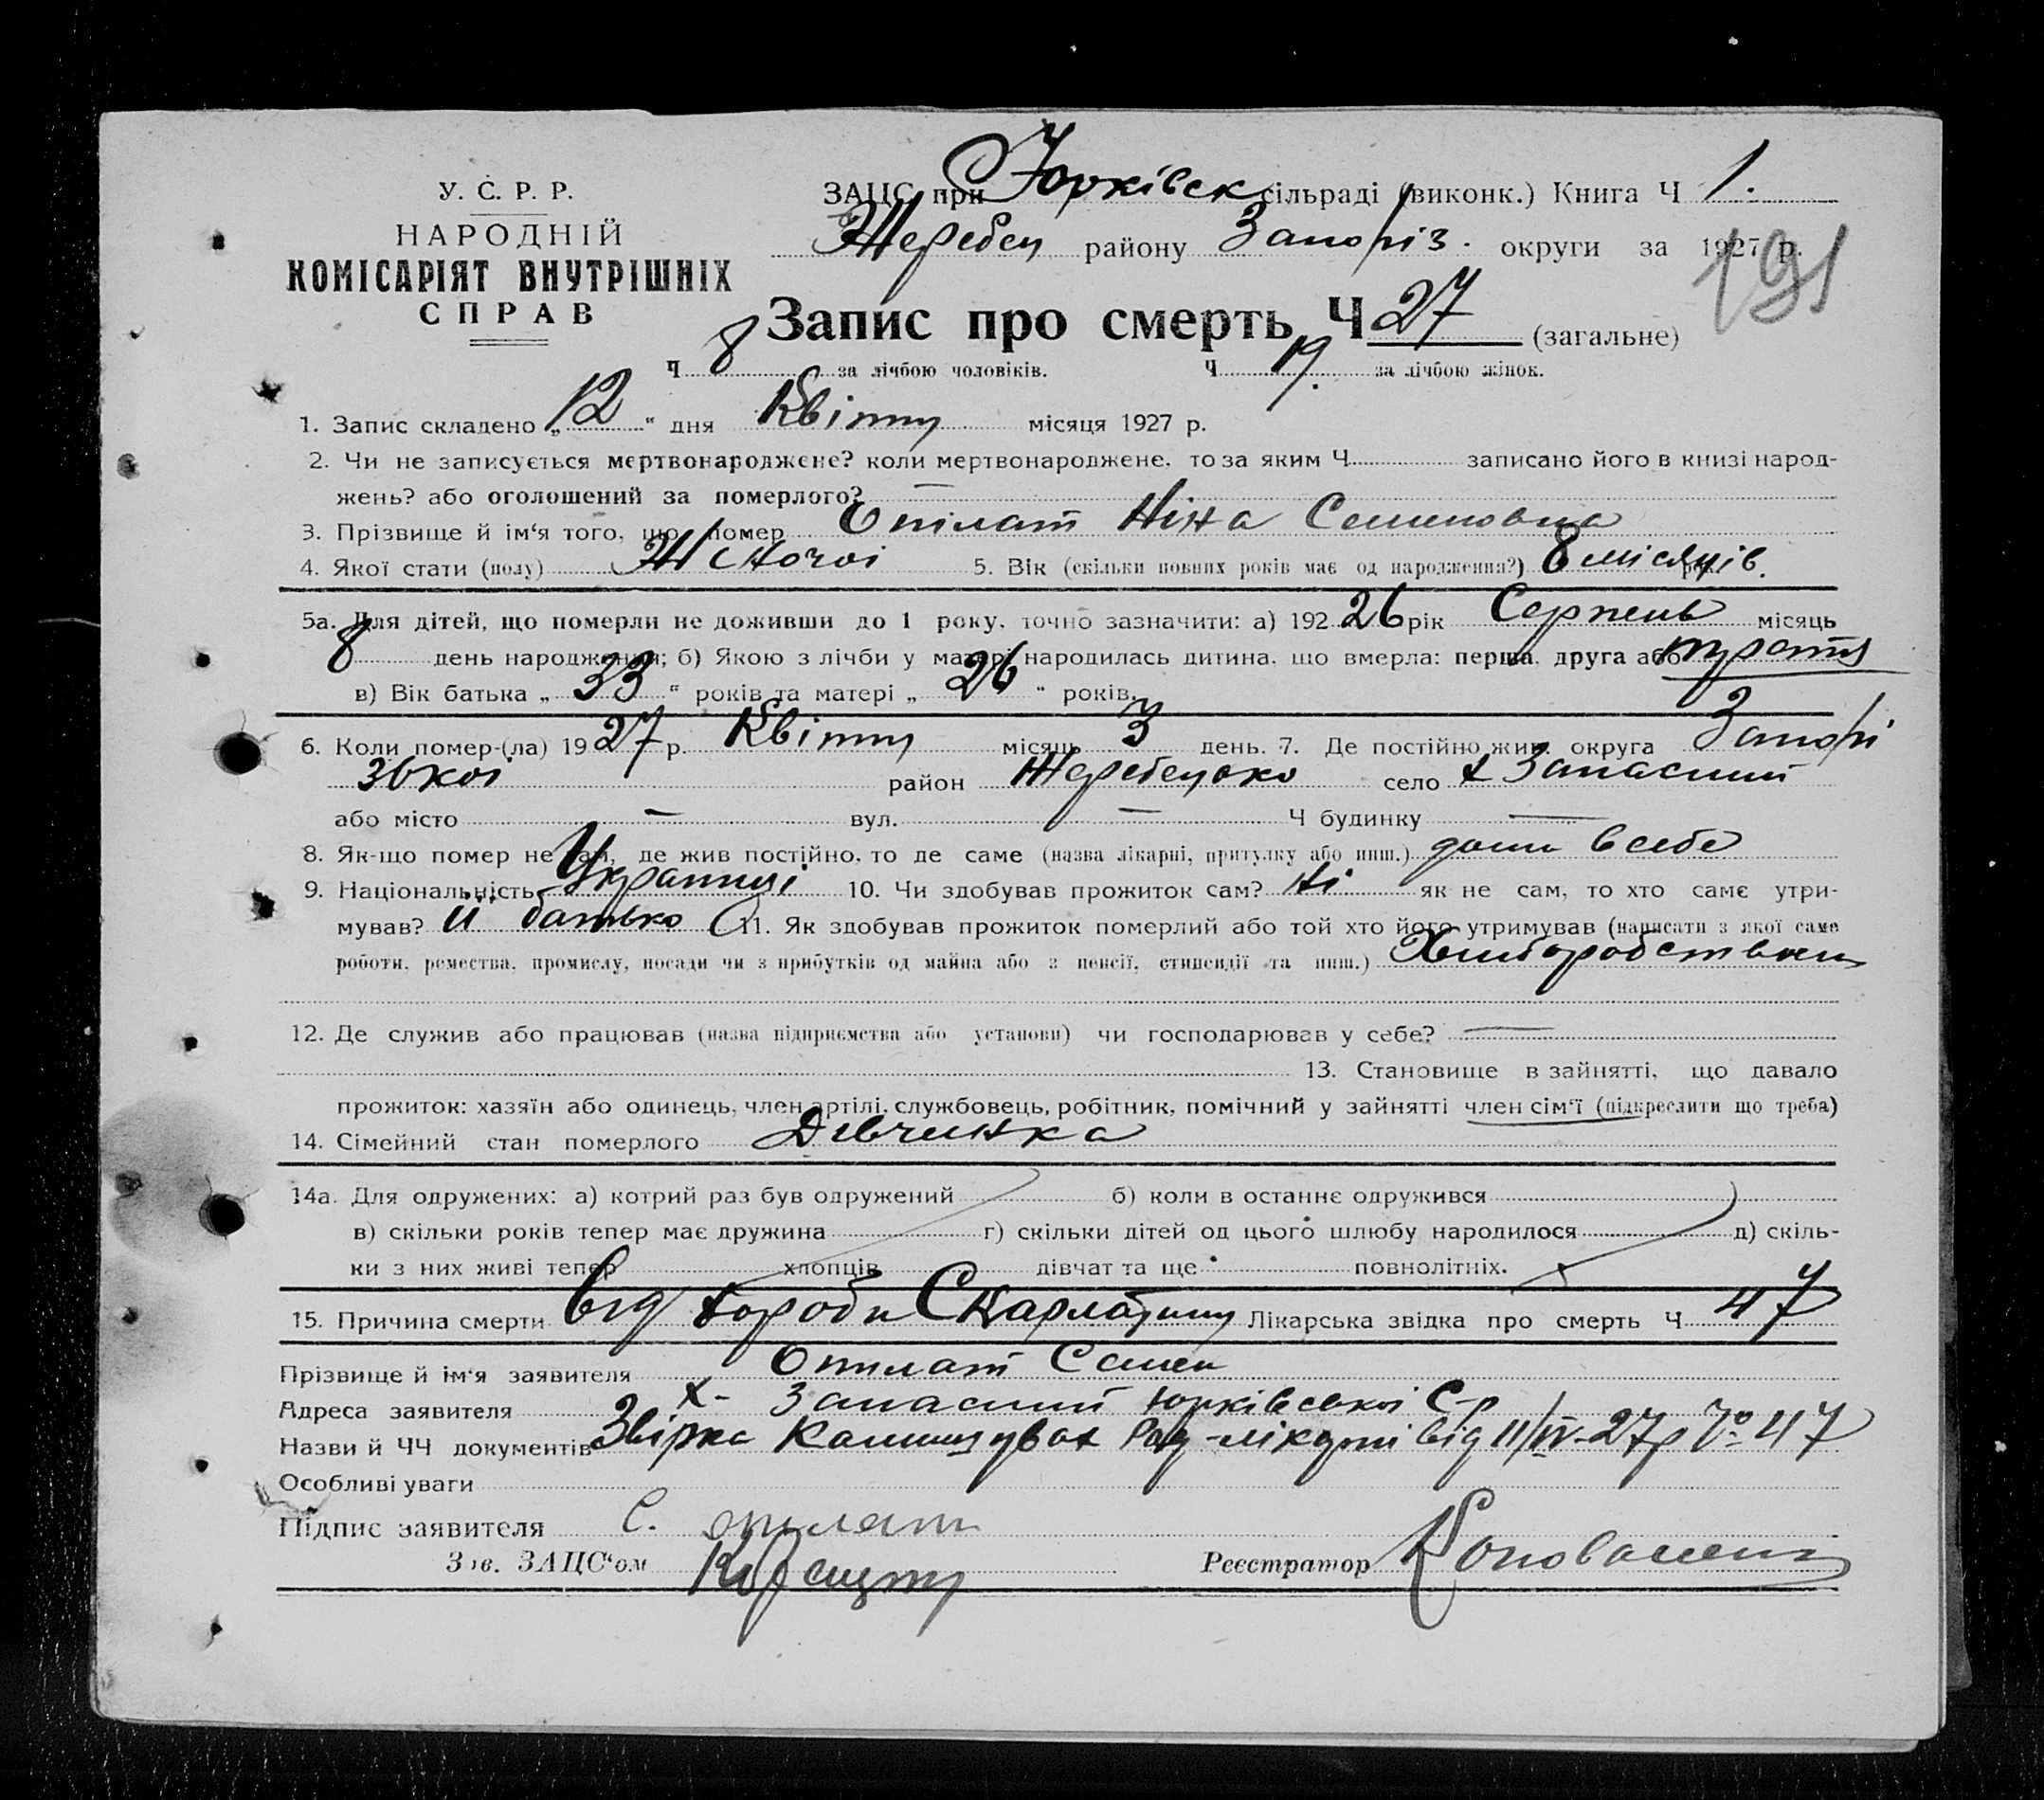 У. С. Р. Р.
НАРОДНІЙ
КОМІСАРІЯТ ВНУТРІШНІХ
СПРАВ
ЗАЦС при Юрківск сільраді (виконк.) Книга Ч 1.
Жеребец району Запоріз. округи за 1927 р.
191
Запис про смерть Ч 27 (загальне)
Ч 8 за лічбою чоловіків. Ч 19. за лічбою жінок.
1. Запис складено „ 12 “ дня Квітня місяця 1927 р.
2. Чи не записується мертвонароджене? коли мертвонароджене, то за яким Ч записано його в книзі народ-
жень? або оголошений за померлого? —
3. Прізвище й ім‘я того, що помер Опілат Ніна Семеновна
4. Якої стати (полу) Жіночоі 5. Вік (скільки повних років має од народження?) 8 місяців.
5а. Для дітей, що померли не доживши до 1 року, точно зазначити: а) 192 26 рік Серпень місяць
8 день народження; б) Якою з лічби у матері народилась дитина, що вмерла: перша, друга або третя
в) Вік батька „ 33 “ років та матері „ 26 “ років.
6. Коли помер-(ла) 19 27 р. Квітня місяць 3 день. 7. Де постійно жив: округа Запорі
зькоі район Жеребецько село х Запасний
або місто — вул. — Ч будинку —
8. Як-що помер не там, де жив постійно, то де саме (назва лікарні, притулку або инш.) дома в себе
9. Національність Украінці 10. Чи здобував прожиток сам? Ні як не сам, то хто саме утри-
мував? її батько 11. Як здобував прожиток померлий або той хто його утримував (написати з якої саме
роботи, ремества, промислу, посади чи з прибутків од майна або з пенсії, стипендії та инш.) Хліборобством
12. Де служив або працював (назва підприємства або установи) чи господарював у себе? —
13. Становище в зайнятті, що давало
прожиток: хазяїн або одинець, член артілі, службовець, робітник, помічний у зайнятті член сім‘ї (підкреслити що треба)
14. Сімейний стан померлого Дівчинка
14а. Для одружених: а) котрий раз був одружений б) коли в останнє одружився
в) скільки років тепер має дружина г) скільки дітей од цього шлюбу народилося д) скіль-
ки з них живі тепер хлопців дівчат та ще повнолітніх.
15. Причина смерти від хороби Скарлатини Лікарська звідка про смерть Ч 47
Прізвище й ім‘я заявителя Опилат Семен
Адреса заявителя х- Запасний Юрківської С-р
Назви й ЧЧ документів Звірка Рай-лікарні від 11/IV-27р № 47
Особливі уваги
Підпис заявителя С. Опилат
Зав. ЗАЦС‘ом
Реєстратор Коновалено